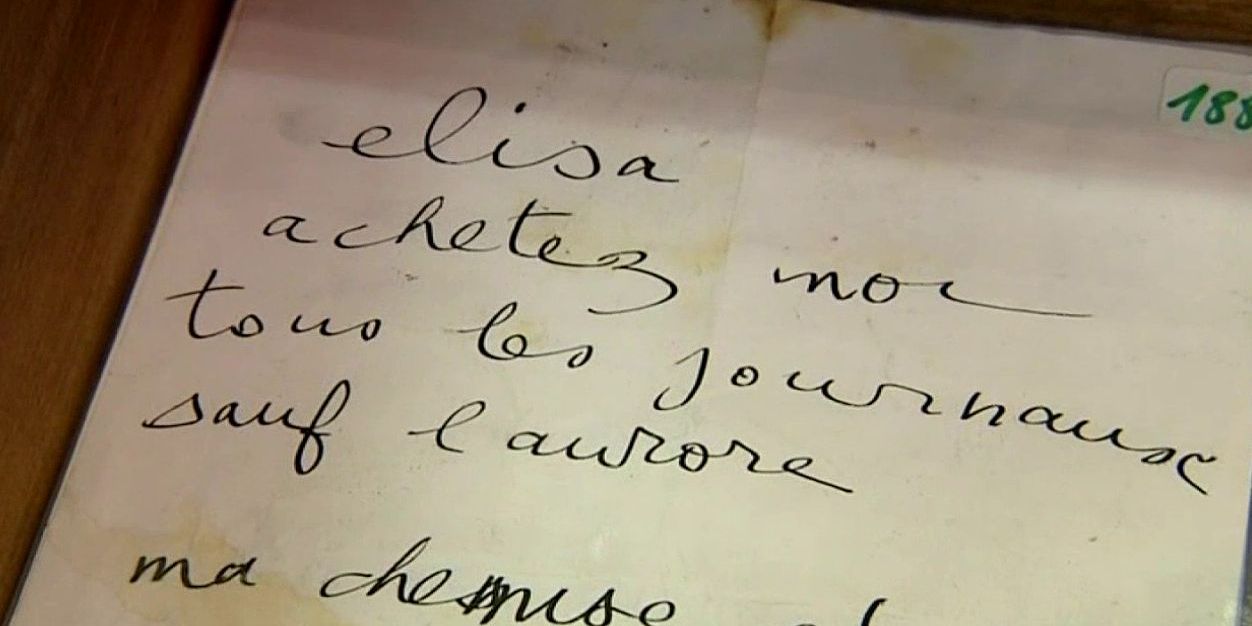 188
elisa
achetez moi
tous les journaux
sauf l'aurore
ma chemise